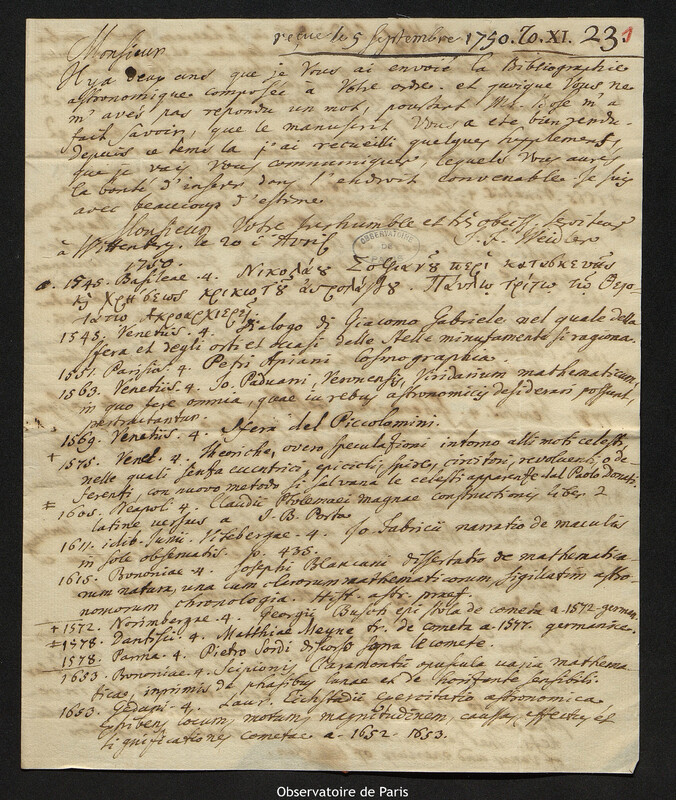 reçue le 5 Septembre 1750. To. XI. 231
Monsieur
Il y a deux ans que je Vous ai envoié la Bibliographie
astronomique composée à Votre ordre. et quoique Vous ne
m'avés pas repondu un mot, pourtant m'a
fait savoir, que le manuscrit Vous a eté bien rendu.
depuis ce tems la j'ai recueilli quelques supplemens,
que je vais Vous communiquer, lequels Vous aurés
la bonté d'inserer dans l'endroit convenable. Je suis
avec beaucoup d'estime
Monsieur Votre treshumble et tres obeiss. serviteur
à Wittenberg. le 20 Avril J. F. Weidler
1750.
OBSERVATOIRE DE
1545. Basileae. 4. Νικολάου Σοφιανοῦ περὶ κατασκευῆς
καὶ χρήσεως κρικωτοῦ ἀστρολάβου. Παύλῳ τρίτῳ τῷ
ἀκροαρχιερεῖ
1545. Venetiis. 4. Dialogo di Giacomo Gabriele nel quale della
sfera et degli orti et occasi delle stelle minutamente si ragiona.
1551. Parisiis. 4. Petri Apiani Cosmographica.
1563. Venetiis. 4. Jo. Paduani, Veronensis, Viridarium mathematicum,
in quo fere omnia, quae in rebus astronomicis desiderari possunt,
pertractantur.
1569. Venetiis. 4. Sfera del Piccolomini.
+ 1575. Venet. 4. Theoriche, overo speculationi intorno alli moti celesti,
nelle quali senza eccentrici, epicicli, spire, circitori, revolventi, o de-
ferenti, con nuovo metodo si salvano le celesti apparenze dal Paolo Donati.
+ 1605. Neapoli. 4. Claudii Ptolemaei magnae constructionis liber 2
latine versus a J. B. Porta
1611. idib. Junii. Vitebergae. 4. Jo Fabricii narratio de maculis
in sole observatis. p. 435.
1615. Bononiae. 4. Josephi Blancani dissertatio de mathematica-
rum natura, una cum clarorum mathematicorum, sigillatim astro-
nomorum chronologia. Hist. astr. praef.
+ 1572. Norimbergae. 4. Georgii Busch epistola de cometa a. 1572. german.
+ 1578. Dantisci. 4. Matthiae Meyne tr. de cometa a. 1577. germanice.
1578. Parma. 4. Pietro Sordi discorso sopra le comete.
1653. Bononiae. 4. Scipionis Claramontii opuscula varia mathema-
tica, inprimis de phasibus lunae et de horizonte sensibili.
1653. Gedani. 4. Laur. Eichstadii exercitatio astronomica
exhibens locum, motum, magnitudinem, caussas, effectus et
significationes cometae a. 1652. 1653.
Observatoire de Paris